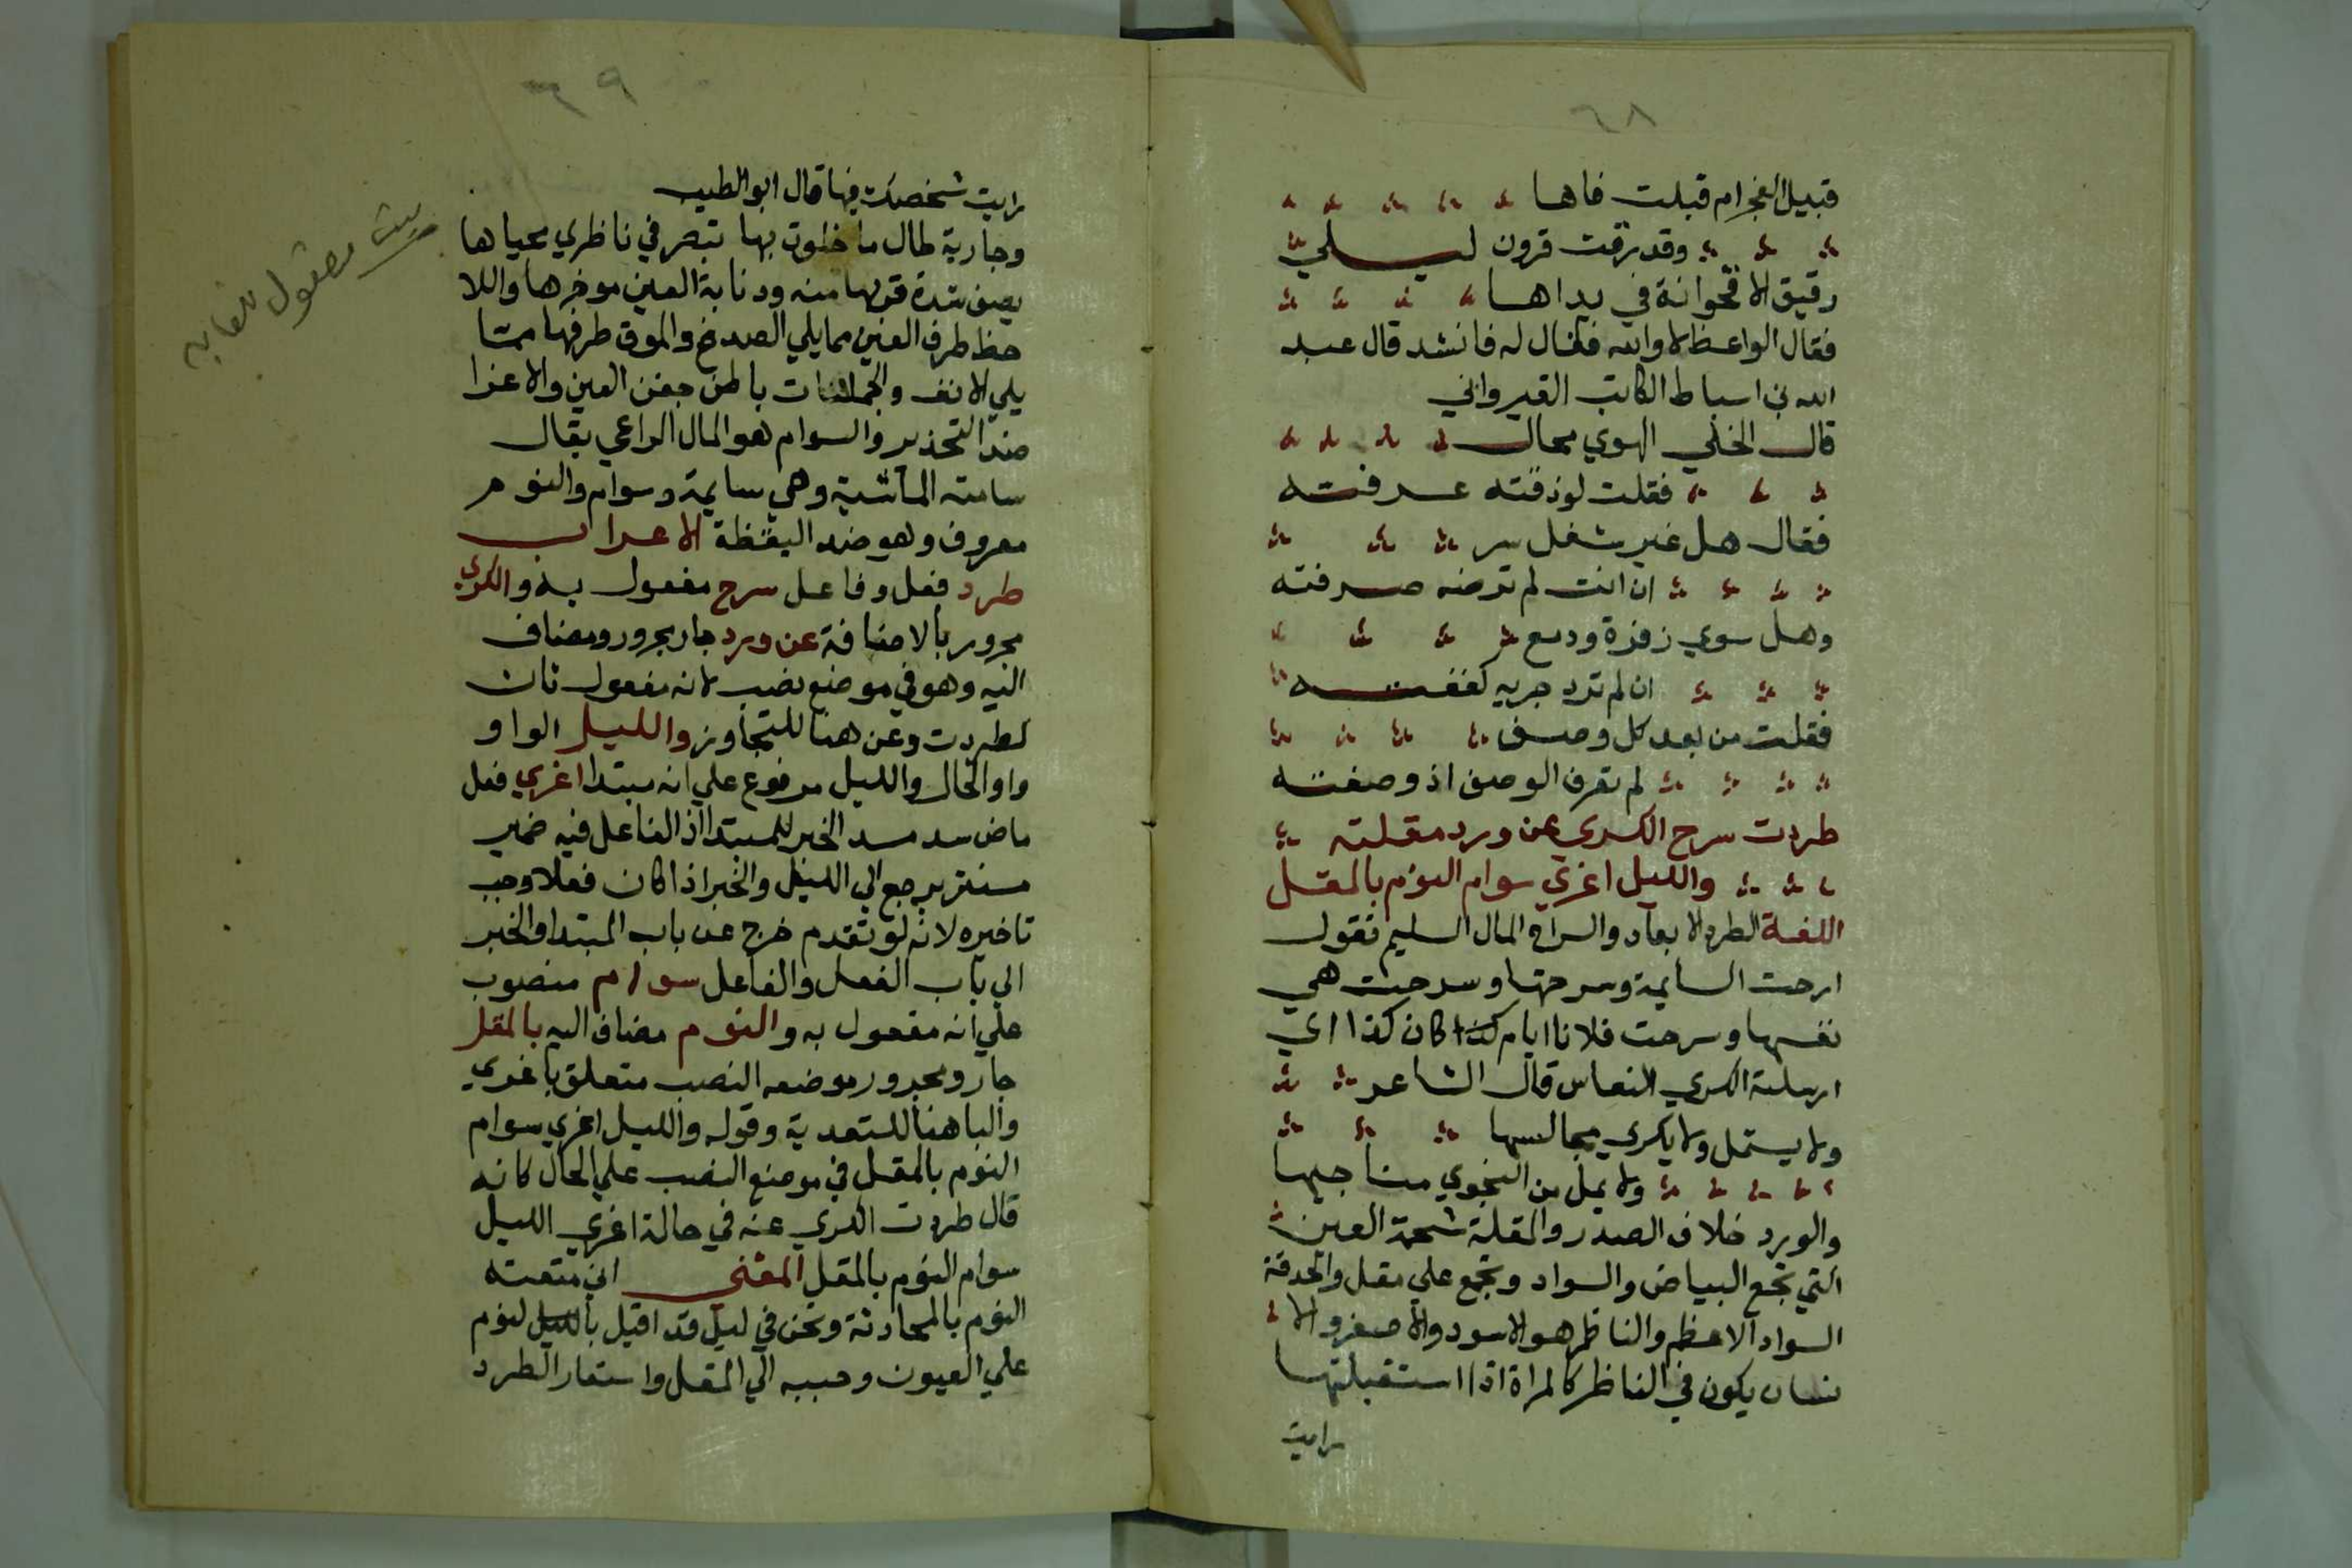 ٦٨
قبيل الفجر ام قبلت فاها
وقد رقت قرون ليلي
رقيق الاقحوانة في يداها
فقال الواعظ لا والله فقال له فانشد قال عبد
الله بن اسباط الكاتب القيرواني
قال الخلي الهوي محال
فقلت لو ذقته عرفته
فقال هل غير شغل سر
ان انت لم ترضه صرفته
وهل سوي زفرة ودمع
ان لم ترد جريه كففته
فقلت من بعد كل وصف
لم تعرف الوصف اذ وصفته
طردت سرح الكري عن ورد مقلته
والليل اغري سوام النوم بالمقل
اللغة الطرد الابعاد والسراح المال السليم فقول
ارحت السايمة وسرحتها وسرحت هي
نفسها وسرحت فلانا ايام كذا كان كذا اي
ارسلته الكري النعاس قال الشاعر
ولا يستمل ولا يكري مجالسها
ولا يمل من النجوي مناجيها
والورد خلاف الصدر والمقلة شحمة العين
التي تجمع البياض والسواد وتجمع علي مقل والحدقة
السواد الاعظم والناظر هو الاسود والاصغر والا
نسان يكون في الناظر كالمراة اذا استقبلتها
رايت
٦٩
رايت شخصك فيها قال ابو الطيب
وجارية طال ما خلوت بها تبصر في ناظري محياها
يصف شدة قربها منه وذنابة العين موخرها واللا
حظ طرف العين مما يلي الصدغ والموق طرفها مما
يلي الانف والحملقات باطن جفن العين والاغرا
ضد التحذير والسوام هو المال الراعي يقال
سامت الماشية وهي سايمة وسوام والنوم
معروف وهو ضد اليقظة الاعراب
طرد فعل وفاعل سرح مفعول به والكري
مجرور بالاضافة عن ورد جار مجرور ومضاف
اليه وهو في موضع نصب لانه مفعول ثان
لطردت وعن هنا للتجاوز والليل الواو
واو الحال والليل مرفوع علي انه مبتدا اغري فعل
ماض سد مسد الخبر للمبتدا اذ الفاعل فيه ضمير
مستتر يرجع الي الليل والخبر اذا كان فعلا وجب
تاخيره لانه لو تقدم خرج عن باب المبتدا والخبر
الي باب الفعل والفاعل سوام منصوب
علي انه مفعول به والنوم مضاف اليه بالمقل
جار ومجرور موضعه النصب متعلق باغري
والبا هنا للتعدية وقوله والليل اغري سوام
النوم بالمقل في موضع النصب علي الحال كانه
قال طردت الكري عنه في حالة اغري الليل
سوام النوم بالمقل المعني اني منعته
النوم بالمحادثة ونحن في ليل قد اقبل بالليل لنوم
علي العيون وحببه الي المقل واستعار الطرد